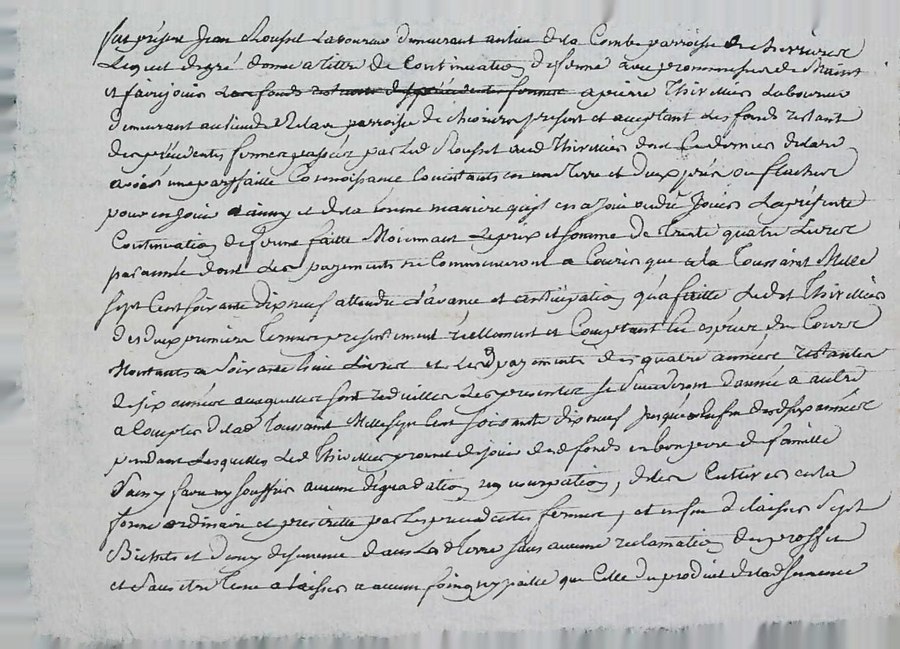 fut présent Jean Rousset Laboureur demeurant au lieu de la Combe parroisse de chevrieres
Lequel degré donne a titre de Continuation de ferme avec promesse de Maint
et faire jouir Les fonds restants des précédentes fermes a pierre Thivillier Laboureur
demeurant au lieu de parroisse de chevrieres present et acceptant Les fonds restant
des précédentes fermes passées par Led Rousset aud Thivillier dont Ce dernier declare
avoir une parfaitte Connoissance Consistants en une Terre et deux prés ou
pour en jouir ainsy et de la même maniere qu'il en a Joui ou dû Jouir La présente
Continuation de ferme faitte Moiennant Le prix et somme de Trente quatre Livres
par année dont Les payements ne Commenceront a Courir que a la Toussaint Mille
sept Cent soixante dix neuf attendu L'avance et anticipation qu'a faitte Led Thivillier
des deux premiers Termes presentement réellement et Comptant en espéces de Cours
Montants a Soixante huit Livres et Les payements des quatre années restantes
de six années auxquelles sont reduittes Les presentes se suivront d'année a autre
a Compter de lad Toussaint Mille sept Cent soixante dix neuf jusques a la fin desd six années
pendant Lesquelles Led Thivillier promet de jouir desd fonds en bon pere de famille
d'y faire ny souffrir aucune dégradation ny usurpation, de Les Cultiver en la
forme ordinaire et prescritte par Les precedentes fermes, et enfin de laisser Sept
Bichets et demy de semence dans Lad Terre sans aucune reclamation du proffit
et sans etre Tenu a laisser aucun foin ny paille que Celle du produit de lad semence